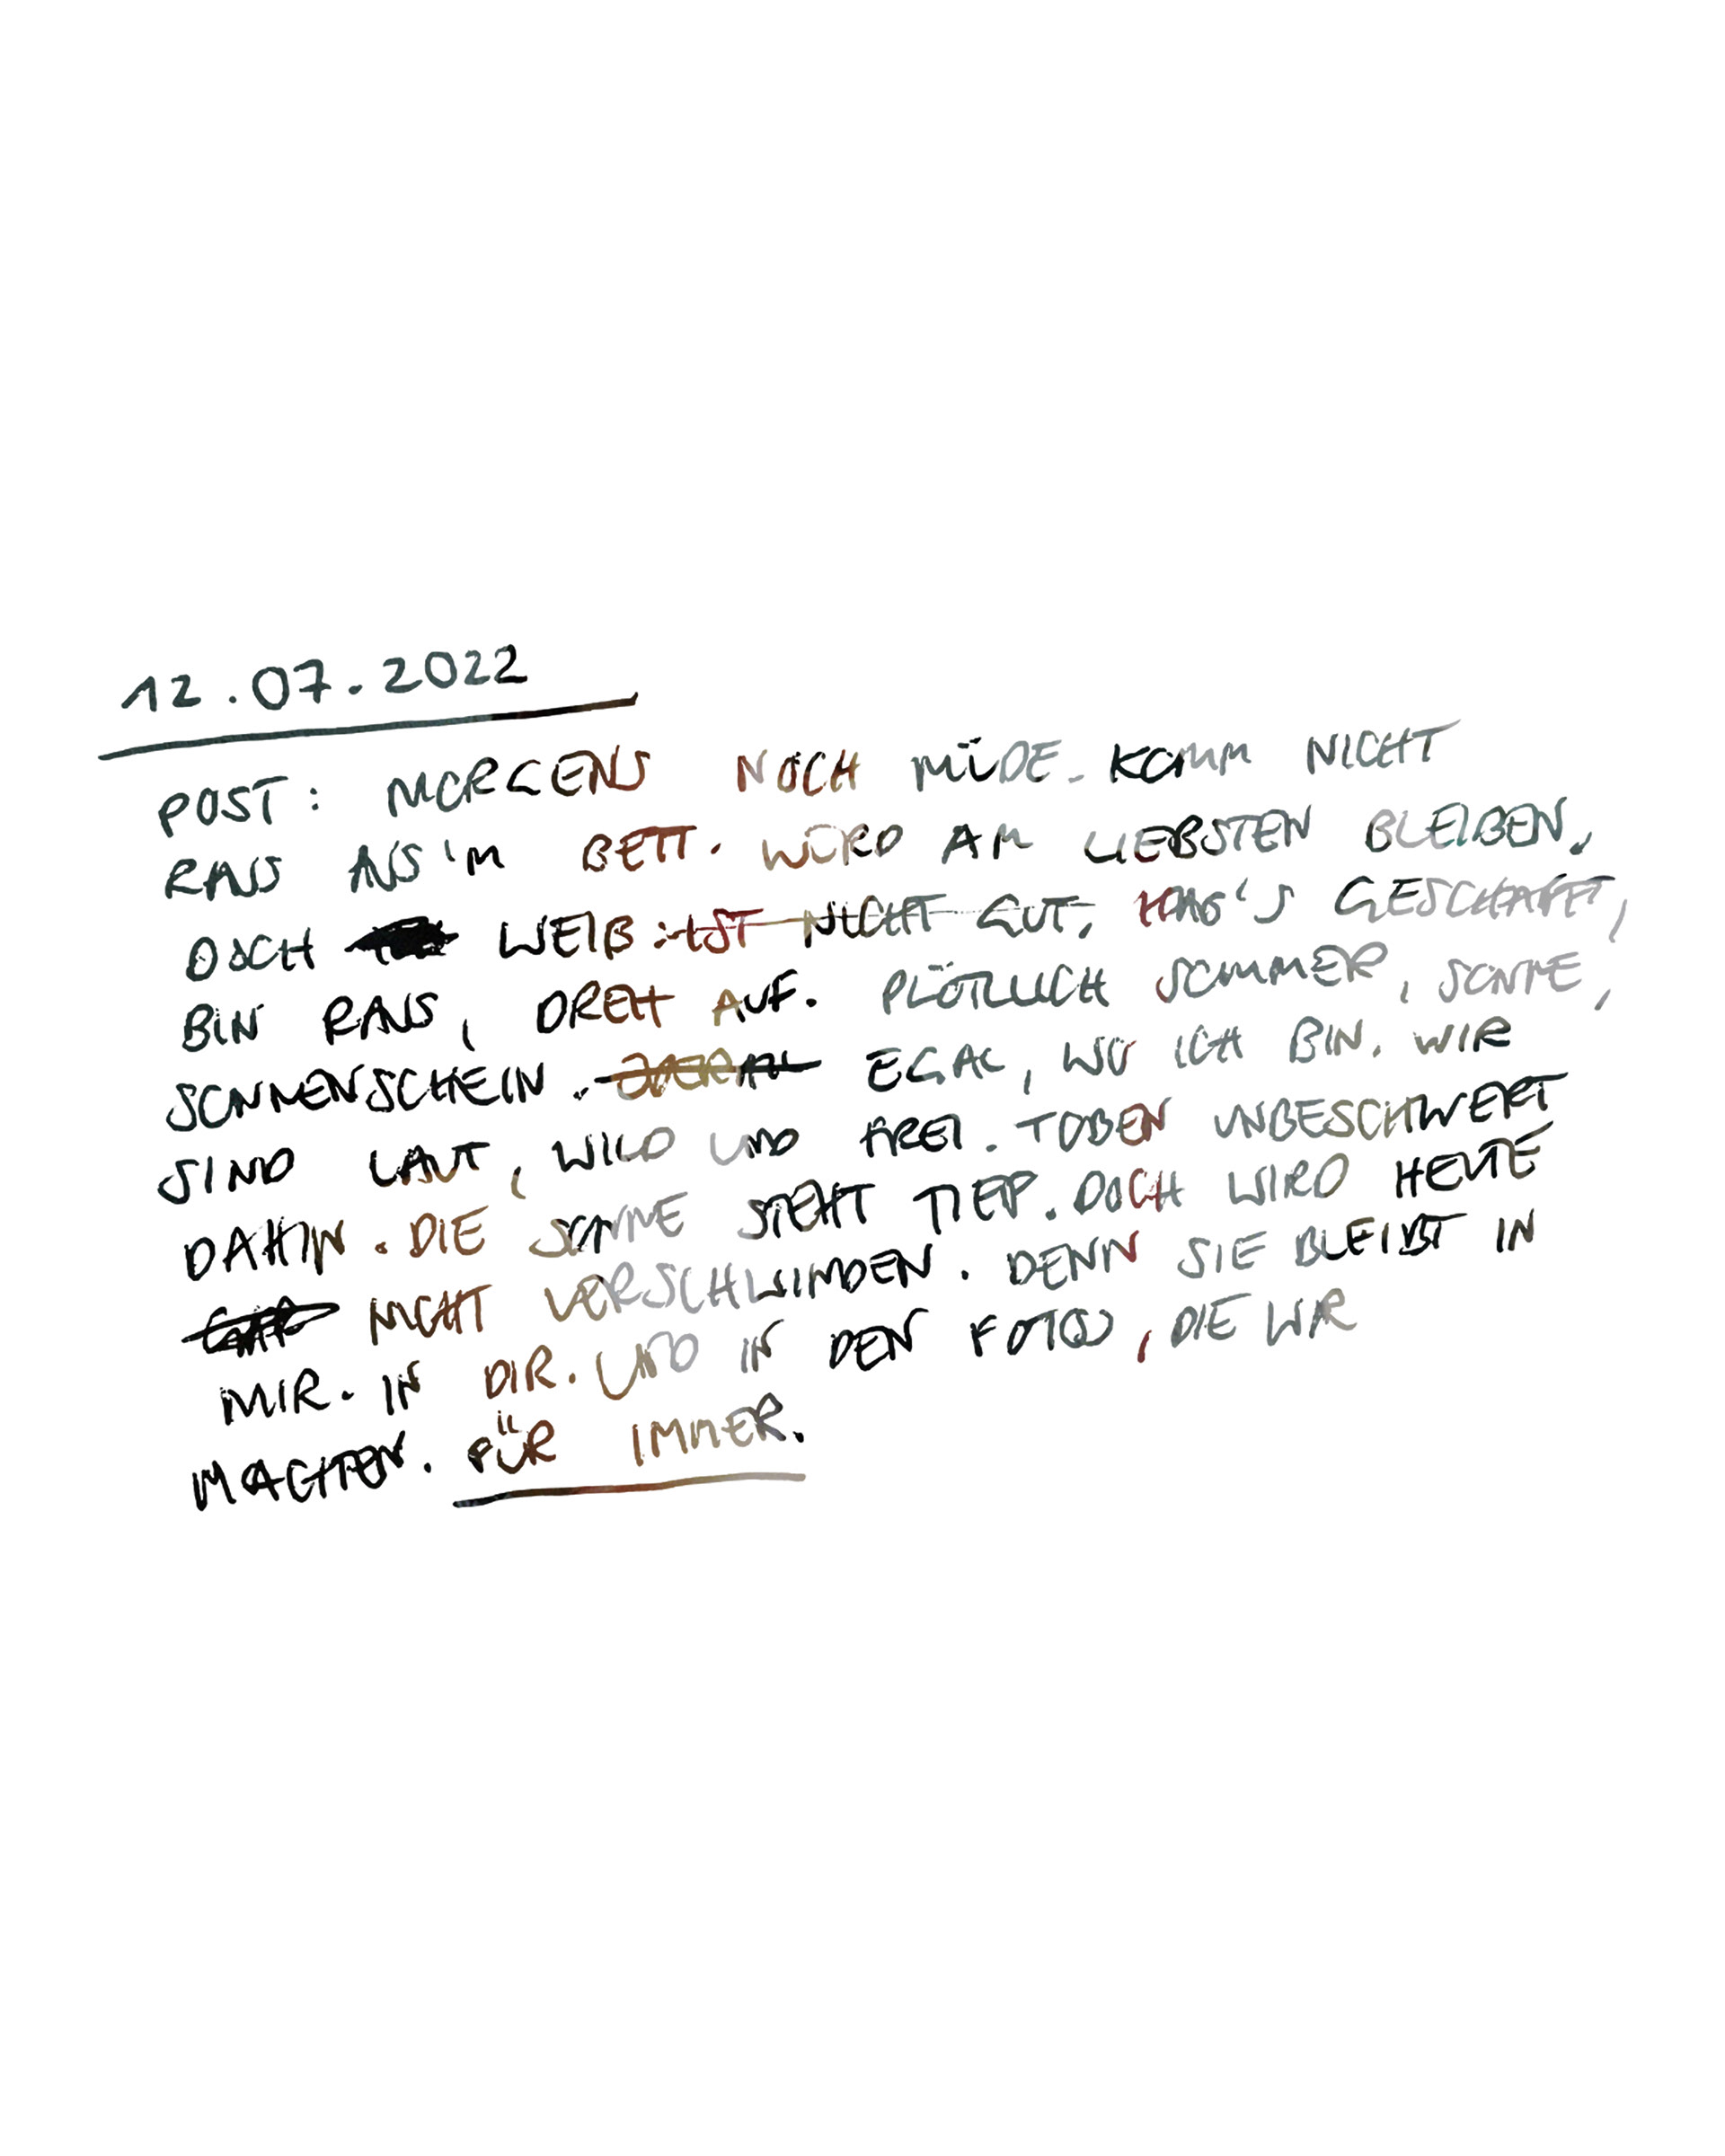 12.07.2022
POST: MORGENS NOCH MÜDE. KOMM NICHT
RAUS AUS'M BETT. WÜRD AM LIEBSTEN BLEIBEN.
DOCH WEIß: IST NICHT GUT. HAB'S GESCHAFFT,
BIN RAUS, DREH AUF. PLÖTZLICH SOMMER, SONNE,
SONNENSCHEIN. ÜBERALL EGAL, WO ICH BIN. WIR
SIND LAUT, WILD UND FREI. TOBEN UNBESCHWERT
DAHIN. DIE SONNE STEHT TIEF. DOCH WIRD HEUTE
NICHT VERSCHWINDEN. DENN SIE BLEIBT IN
MIR. IN DIR. UND IN DEN FOTOS, DIE WIR
MACHTEN. FÜR IMMER.